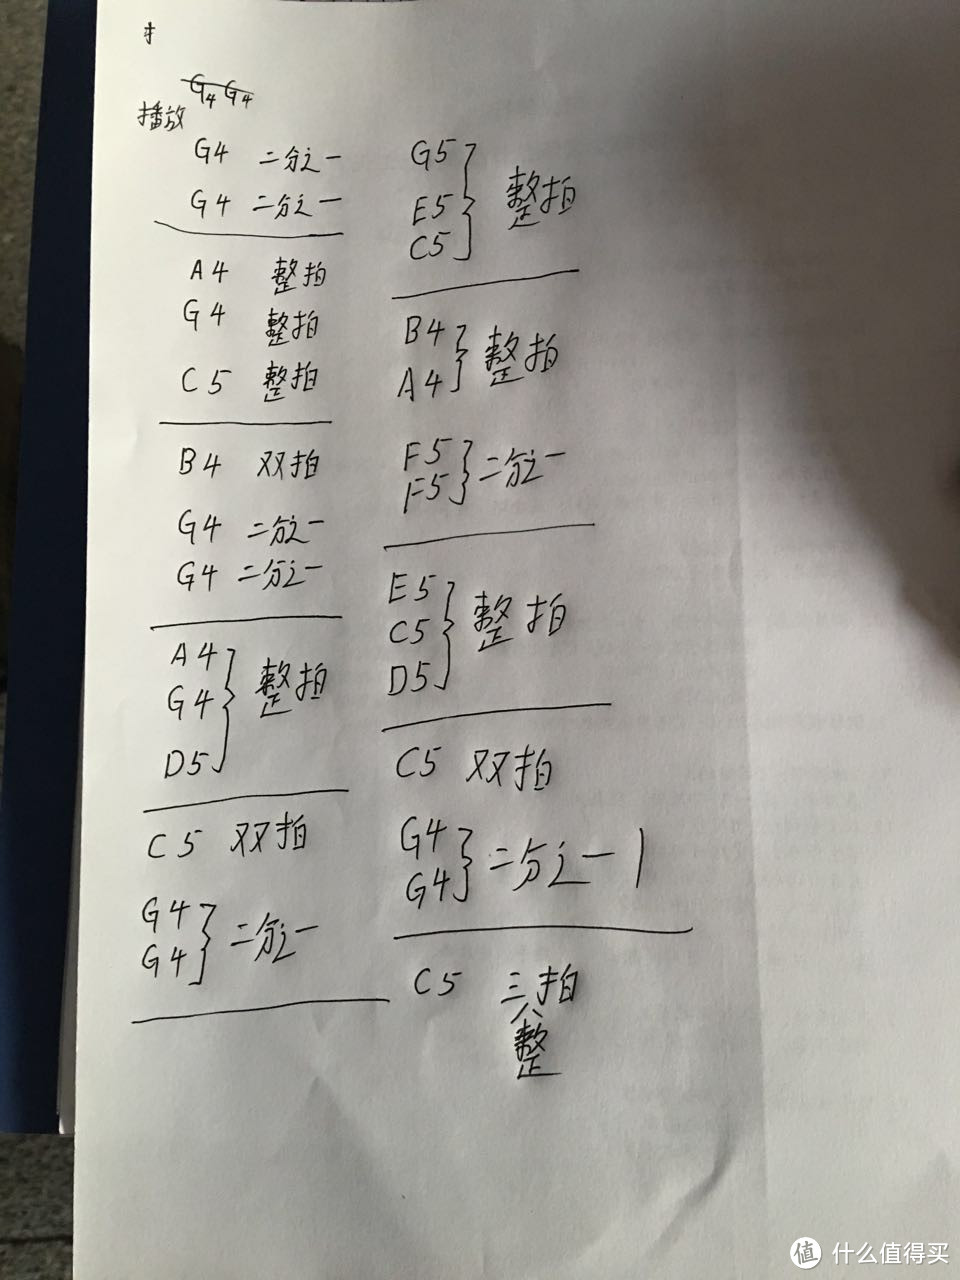 扌
G4 G4
播放
G4 二分之一
G4 二分之一
A4 整拍
G4 整拍
C5 整拍
B4 双拍
G4 二分之一
G4 二分之一
A4
G4 整拍
D5
C5 双拍
G4
G4 二分之一
G5
E5 整拍
C5
B4
A4 整拍
F5
F5 二分之一
E5
C5 整拍
D5
C5 双拍
G4
G4 二分之一
C5 三拍
整
值 什么值得买